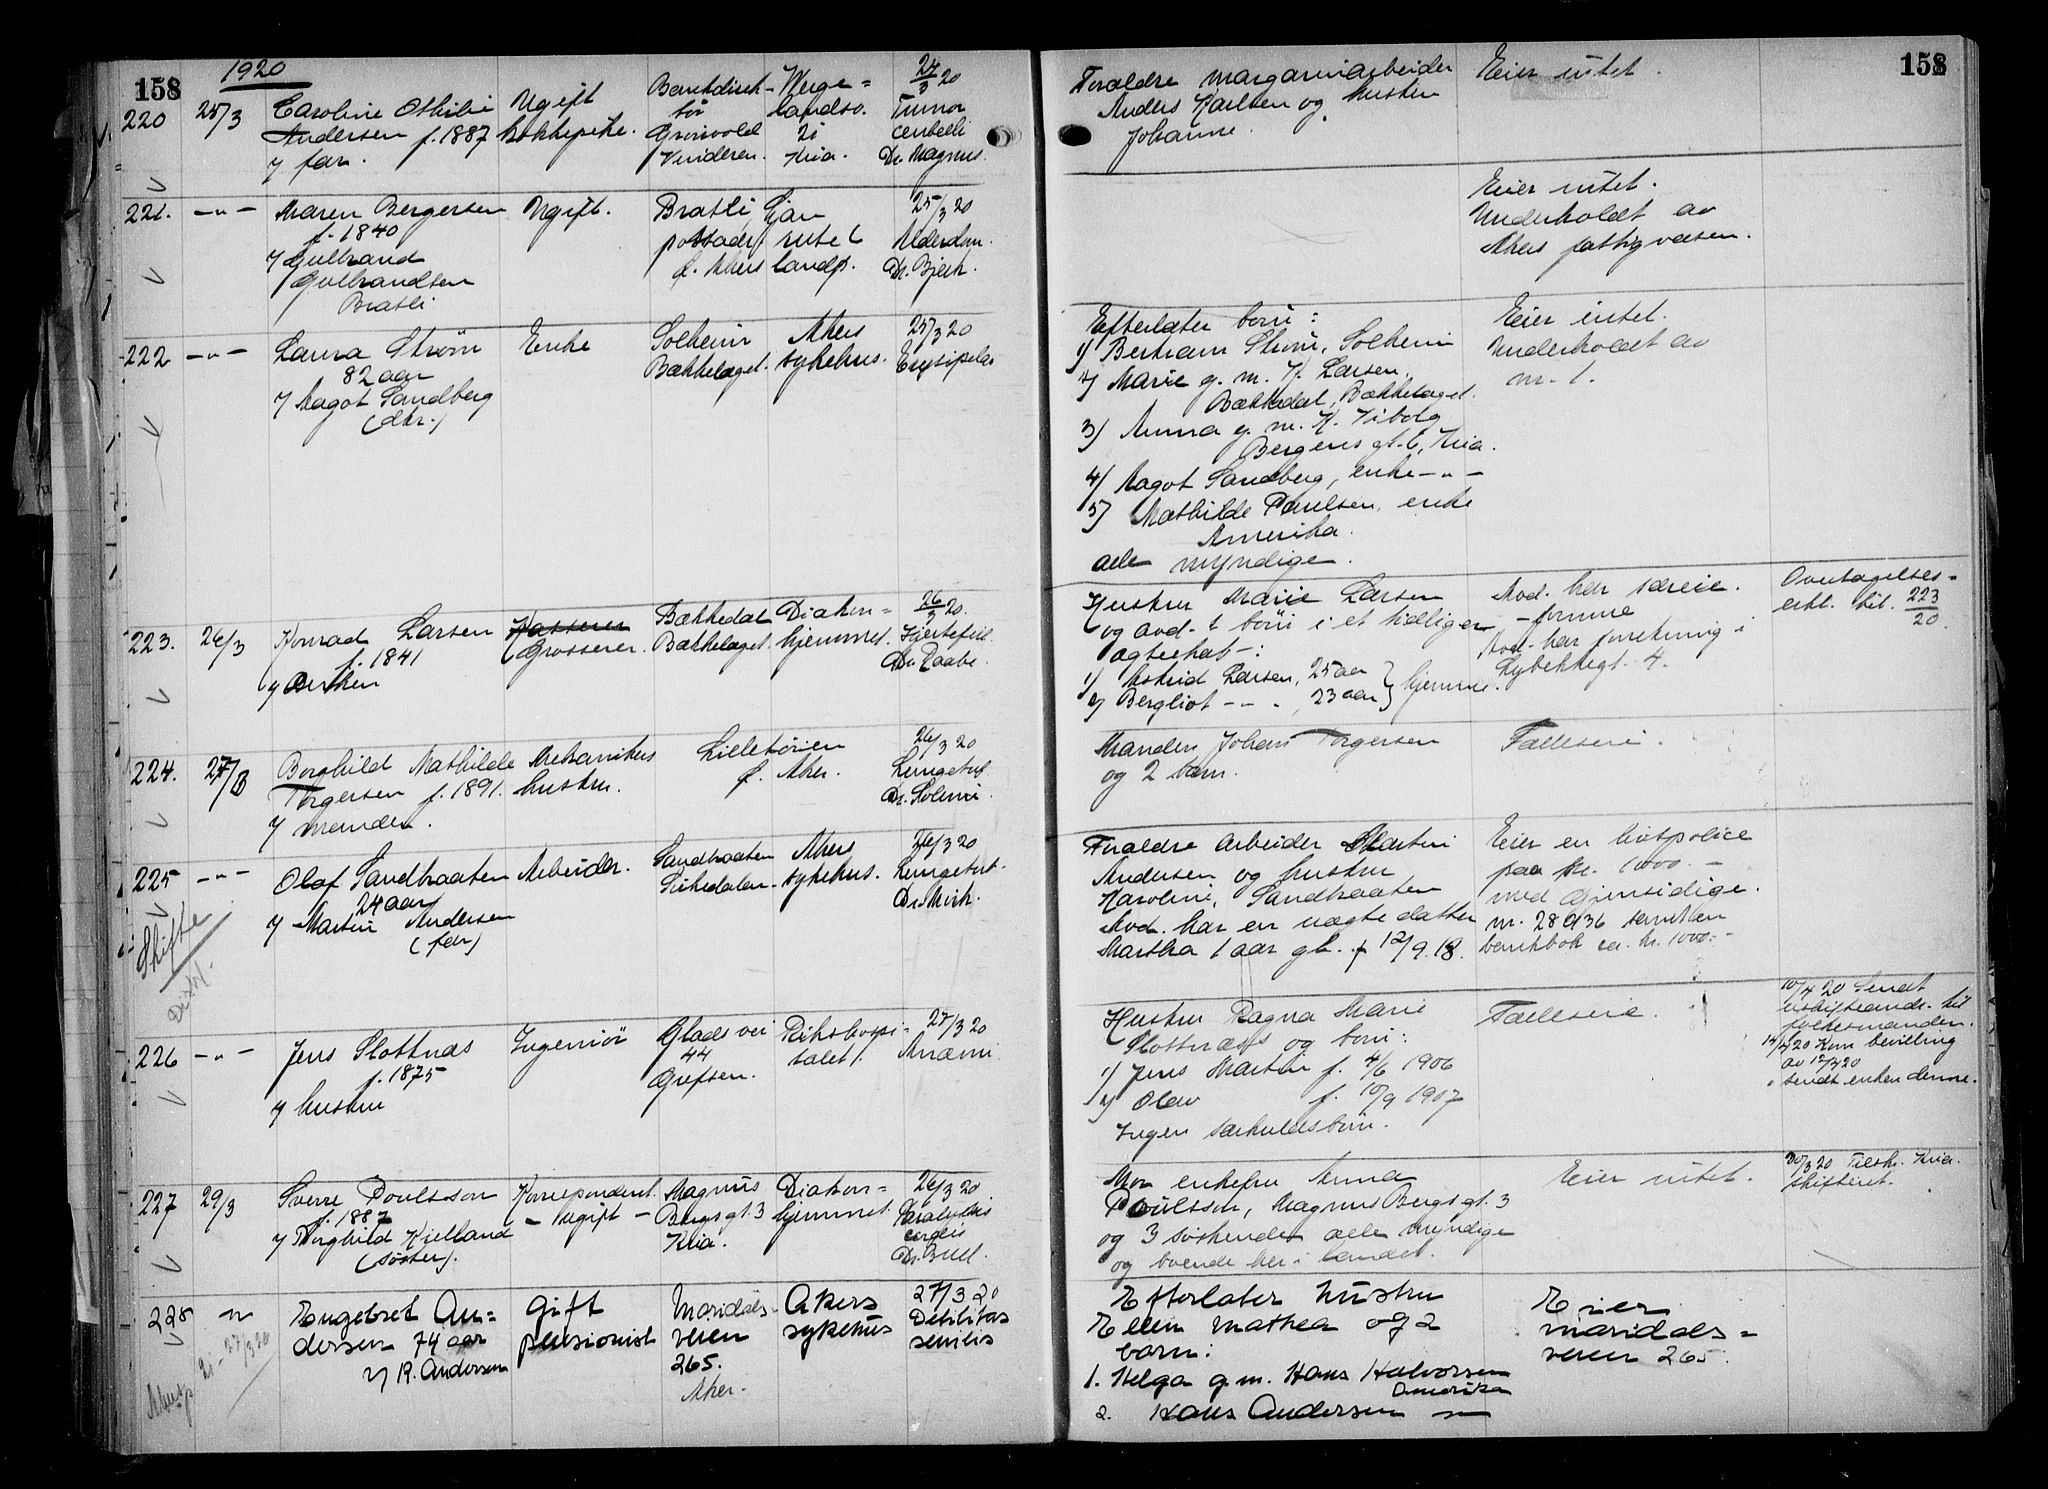 158
1920
220
25/3
Caroline Othilie
Andersen f. 1887
v/ far.
Ugift
kokkepike.
Bankdirek-
tør
Grønvold
Vinderen.
Werge-
landsv.
Kria.
24/3 20
Tumor
cerebelli
Dr. Magnus.
221.
-"-
Maren Bergersen
f. 1840
v/ Gulbrand
Gulbrandsen
Bratli
Ugift.
Bratli Ljan
f. Aker
25/3 20
Alderdom.
222
-"-
Laura Strøm
82 aar
v/ Aagot Sandberg
(dtr.)
Enke
Solheim
Bækkelaget.
Akers
sykehus.
25/3 20
Erysipelas
223.
26/3
Konrad Larsen
f. 1841
v/ Enken
Kasserer
Grosserer.
Bækkedal
Bækkelaget.
Diakon-
hjemmet.
26/3 20.
Hjertefeil
Dr. Raabe.
224.
27/3
Borghild Mathilde
Torgersen f. 1891.
v/ manden.
Mekanikers
hustru.
Lilletorien
f. Aker.
26/3 20
Lungetub.
225
-"-
Olaf Sandbraaten
24 aar
v/ Martin Andersen
(far)
Skifte
Arbeider.
Sandbraaten
Sørkedalen.
Akers
sykehus.
26/3 20
Lungetub.
226
-"-
Jens Slottnæs
f. 1875
v/ hustru
Ingeniør
Glads vei
44
Grefsen.
Rikshospi-
talet.
27/3 20
Anæmi
227
29/3
Sverre Poulsson
f. 1887
v/ Borghild Kielland
(søster).
Korrespondent.
- ugift -
Magnus
Bergs gt. 3
Kria.
Diakon-
hjemmet.
26/3 20
Paralysis
cordis
Dr. Bull.
228
"
Engebret An-
dersen 74 aar
v/ R. Andersen
Gift
pensionist
Maridals-
veien
265.
Aker.
Akers
sykehus
27/3 20
Debilitas
senilis
158
Forældre margarinarbeider
Anders Karlsen og hustru
Johanne.
Eier intet.
Eier intet.
Underholdt av
Akers fattigvæsen.
Efterlater børn:
1) Bertram Strøm, Solheim
2) Marie g. m. K. Larsen,
Bækkedal, Bækkelaget.
3) Anna g. m. K. Viborg
Bergens gt. 6, Kria.
4) Aagot Sandberg, enke -"-
5) Mathilde Paulsen, enke
Amerika.
alle myndige.
Eier intet.
Underholdt av
nr. 1.
Hustru Marie Larsen
og avd.s børn i et tidligere
ægteskab:
1) Astrid Larsen, 25 aar
2) Bergliot -"-, 23 aar } hjemme.
Avd. har særeie.
- formue
Avd. har forretning i
Lybekkergt. 4.
Overtagelses-
erkl. bil. 223/20.
Manden Johan Torgersen
og 2 barn.
Fælleseie.
Forældre arbeider Martin
Andersen og hustru
Karoline, Sandbraaten
Avd. har en uægte datter
Martha 1 aar gl. f 12/9.18.
Eier en livspolice
paa kr. 1000.-
med Gjensidige.
nr. 28936 samt en
bankbok ca. kr. 1000.-
Hustru Ragna Marie
Slottnæs og børn:
1) Jens Martin f. 4/6 1906
2) Olav f. 10/9 1907
Ingen særkuldsbørn.
Fælleseie.
10/4 20 Sendt
uskifteands. til
fylkesmanden.
14/4 20 Kom bevilling
av 12/4 20
" sendt enken denne.
Mor enkefru Anna
Poulsson, Magnus Bergs gt. 3
og 3 søskende alle myndige
og boende her i landet.
Eier intet.
30/3 20 Tilskr. Kria.
skifteret.
Efterlater hustru
Ellen Mathea og 2
barn:
1. Helga g.m. Hans Halvorsen
Amerika
2. Hans Andersen "
Eier
maridals-
veien 265.